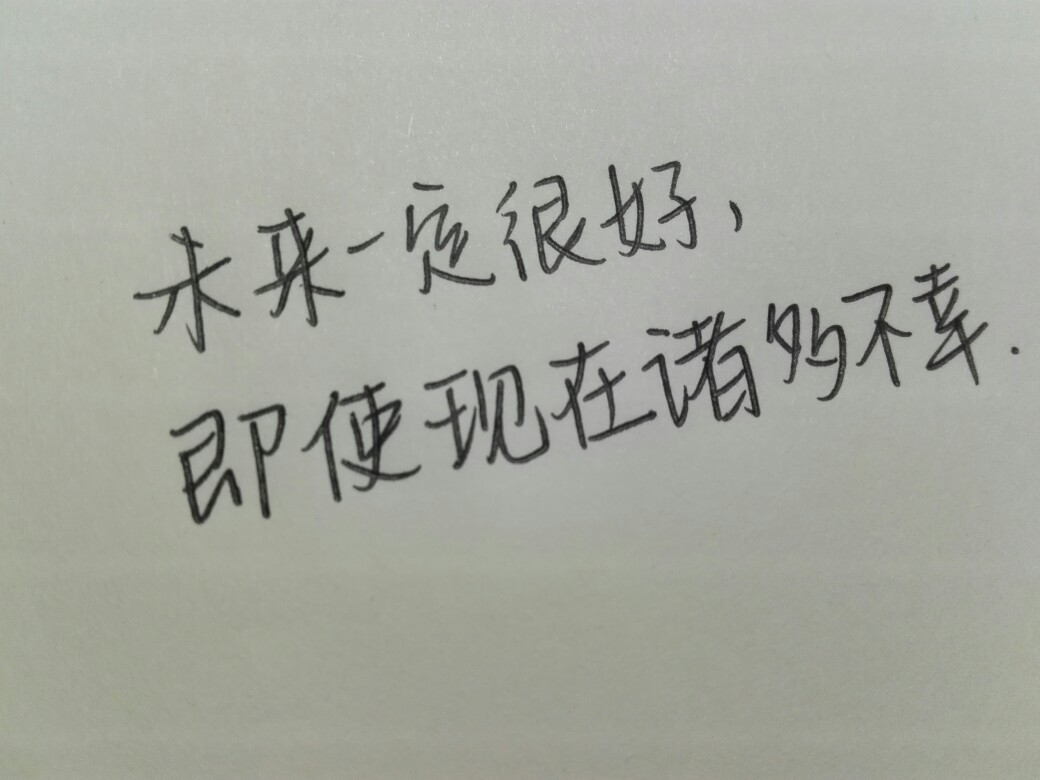 未来一定很好，
即使现在诸多不幸.